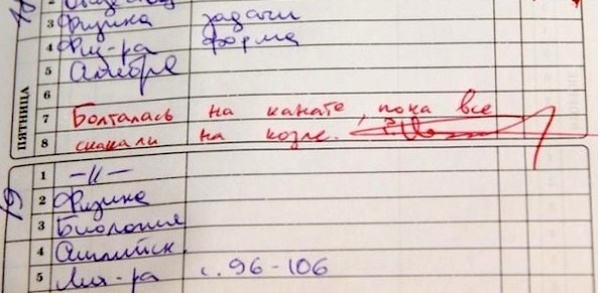 18
3 Физика задачи
4 Физ-ра форма
5 Алгебра
6
ПЯТНИЦА
7 Болталась на канате, пока все
8 скакали на козле.
19
1 -||-
2 Физика
3 Биология
4 Английск.
5 Лит-ра с. 96-106